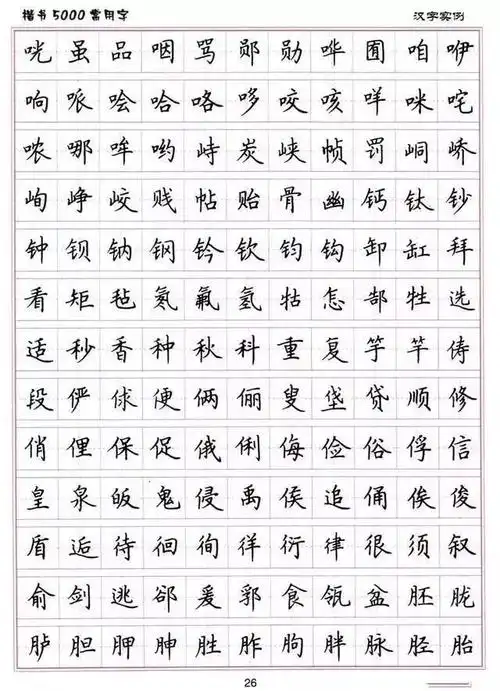 楷书5000常用字 汉字实例
咣 虽 品 咽 骂 郧 勋 哗 囿 咱 咿
响 哌 哙 哈 咯 哆 咬 咳 咩 咪 咤
哝 哪 哞 哟 峙 炭 峡 帧 罚 峒 峤
峋 峥 峧 贱 帖 贻 骨 幽 钙 钛 钞
钟 钡 钠 钢 钤 钦 钧 钩 卸 缸 拜
看 矩 毡 氡 氟 氢 牯 怎 郜 牲 选
适 秒 香 种 秋 科 重 复 竽 竿 俦
段 俨 俅 便 俩 俪 叟 垡 贷 顺 修
俏 俚 保 促 俄 俐 侮 俭 俗 俘 信
皇 泉 皈 鬼 侵 禹 侯 追 俑 俟 俊
盾 逅 待 徊 徇 徉 衍 律 很 须 叙
俞 剑 逃 郤 爰 郛 食 瓴 盆 胚 胧
胪 胆 胛 胂 胜 胙 朐 胖 脉 胫 胎
26